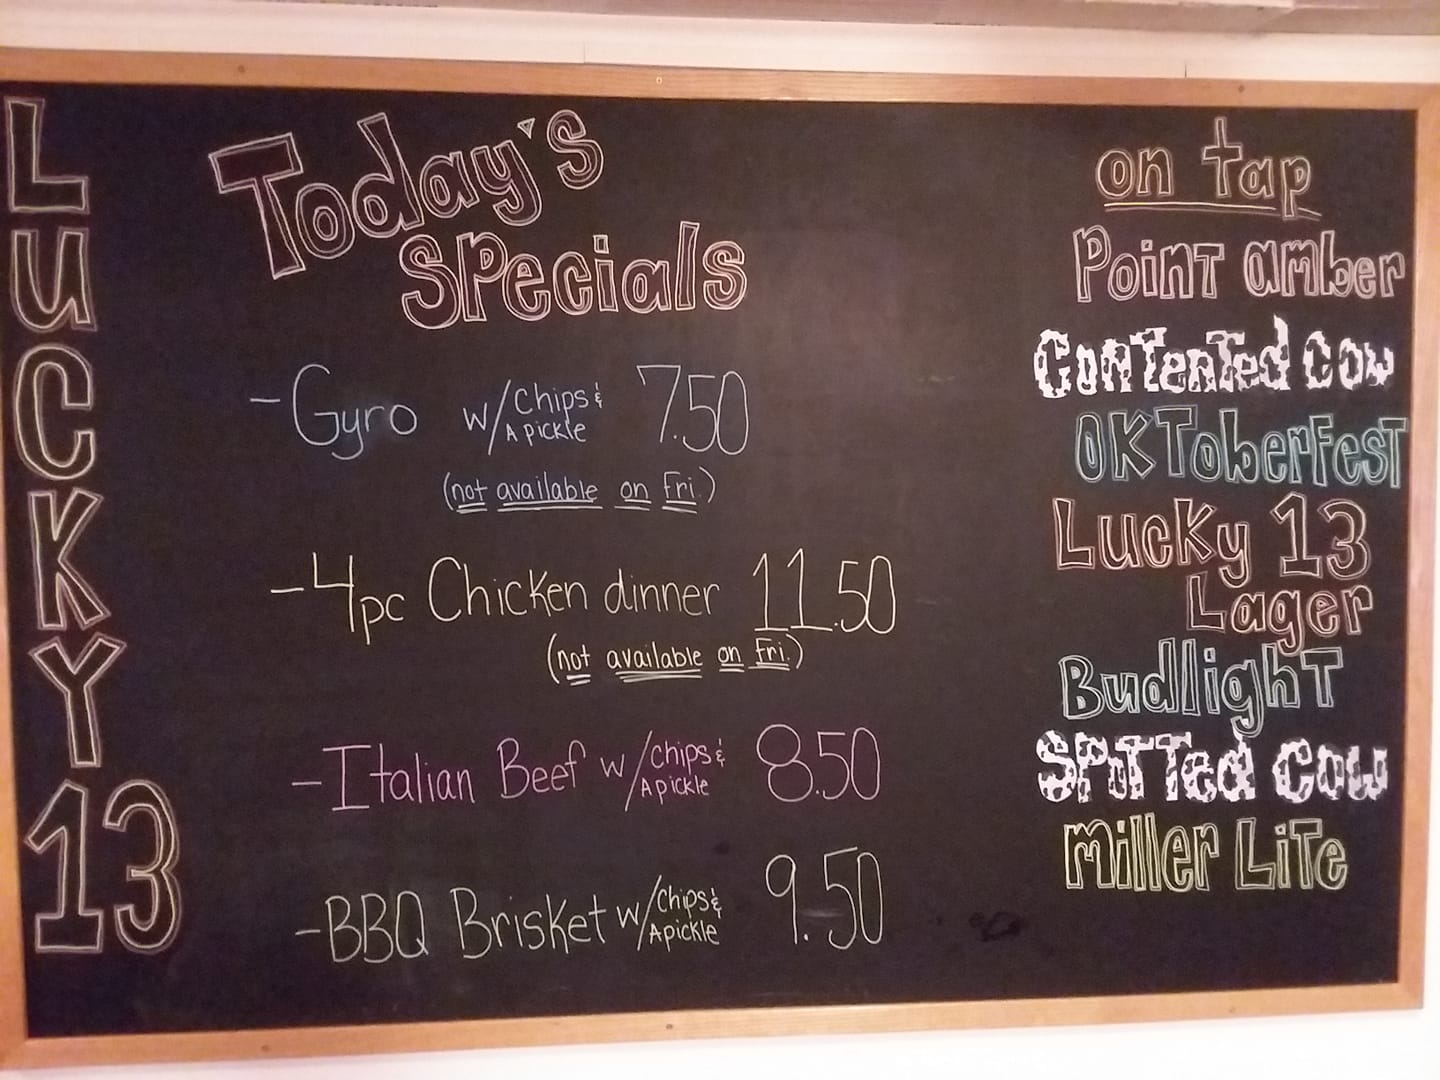 LUCKY 13
Today's
Specials
- Gyro w/ Chips & A pickle 7.50
(not available on Fri.)
- 4pc Chicken dinner 11.50
(not available on Fri.)
- Italian Beef w/ Chips & A pickle 8.50
- BBQ Brisket w/ Chips & A pickle 9.50
on tap
Point amber
Contented Cow
Oktoberfest
Lucky 13
Lager
Budlight
Spotted Cow
Miller Lite